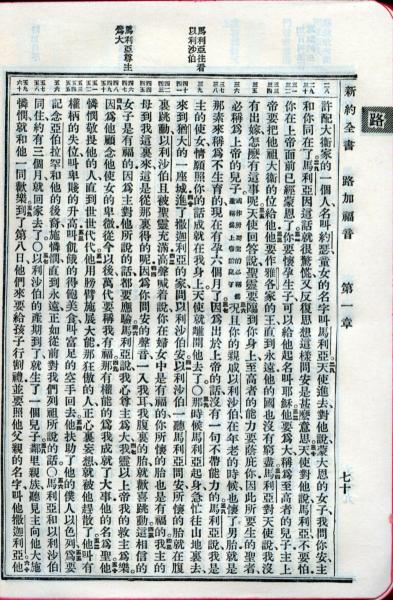 路
新約全書 路加福音 第一章 七十
馬利亞往看以利沙伯
馬利亞尊主爲大
許配大衛家的一個人名叫約瑟童女的名字叫馬利亞天使進去對他說蒙大恩的女子我問你安主
和你同在了馬利亞因這話就很驚慌又反復思想這樣問安是甚麼意思天使對他說馬利亞不要怕
你在上帝面前已經蒙恩了你要懷孕生子可以給他起名叫耶穌他要爲大稱爲至高者的兒子主上
帝要把他祖大衛的位給他他要作雅各家的王直到永遠他的國也沒有窮盡馬利亞對天使說我沒
有出嫁怎麼有這事呢天使回答說聖靈要臨到你身上至高者的能力要蔭庇你因此所要生的聖者
必稱爲上帝的兒子況且你的親戚以利沙伯在年老的時候也懷了男胎就是
那素來稱爲不生育的現在有孕六個月了因爲出於上帝的話沒有一句不帶能力的馬利亞說我是
主的使女情願照你的話成就在我身上天使就離開他去了○那時候馬利亞起身急忙往山地裏去
來到猶大的一座城進了撒迦利亞的家問以利沙伯安以利沙伯一聽馬利亞問安所懷的胎就在腹
裏跳動以利沙伯且被聖靈充滿高聲喊着說你在婦女中是有福的你所懷的胎也是有福的我主的
母到我這裏來這是從那裏得的呢因爲你問安的聲音一入我耳我腹裏的胎就歡喜跳動這相信的
女子是有福的因爲主對他所說的話都要應驗馬利亞說我心尊主爲大我靈以上帝我的救主爲樂
因爲他顧念他使女的卑微從今以後萬代要稱我有福那有權能的爲我成就了大事他的名爲聖他
憐憫敬畏他的人直到世世代代他用膀臂施展大能那狂傲的人正心裏妄想就被他趕散了他叫有
權柄的失位叫卑賤的升高叫飢餓的得飽美食叫富足的空手回去他扶助了他的僕人以色列爲要
記念亞伯拉罕和他的後裔施憐憫直到永遠正如從前對我們列祖所說的話○馬利亞和以利沙伯
同住約有三個月就回家去了○以利沙伯的產期到了就生了一個兒子鄰里親族聽見主向他大施
憐憫就和他一同歡樂到了第八日他們來要給孩子行割禮並要照他父親的名字叫他撒迦利亞他